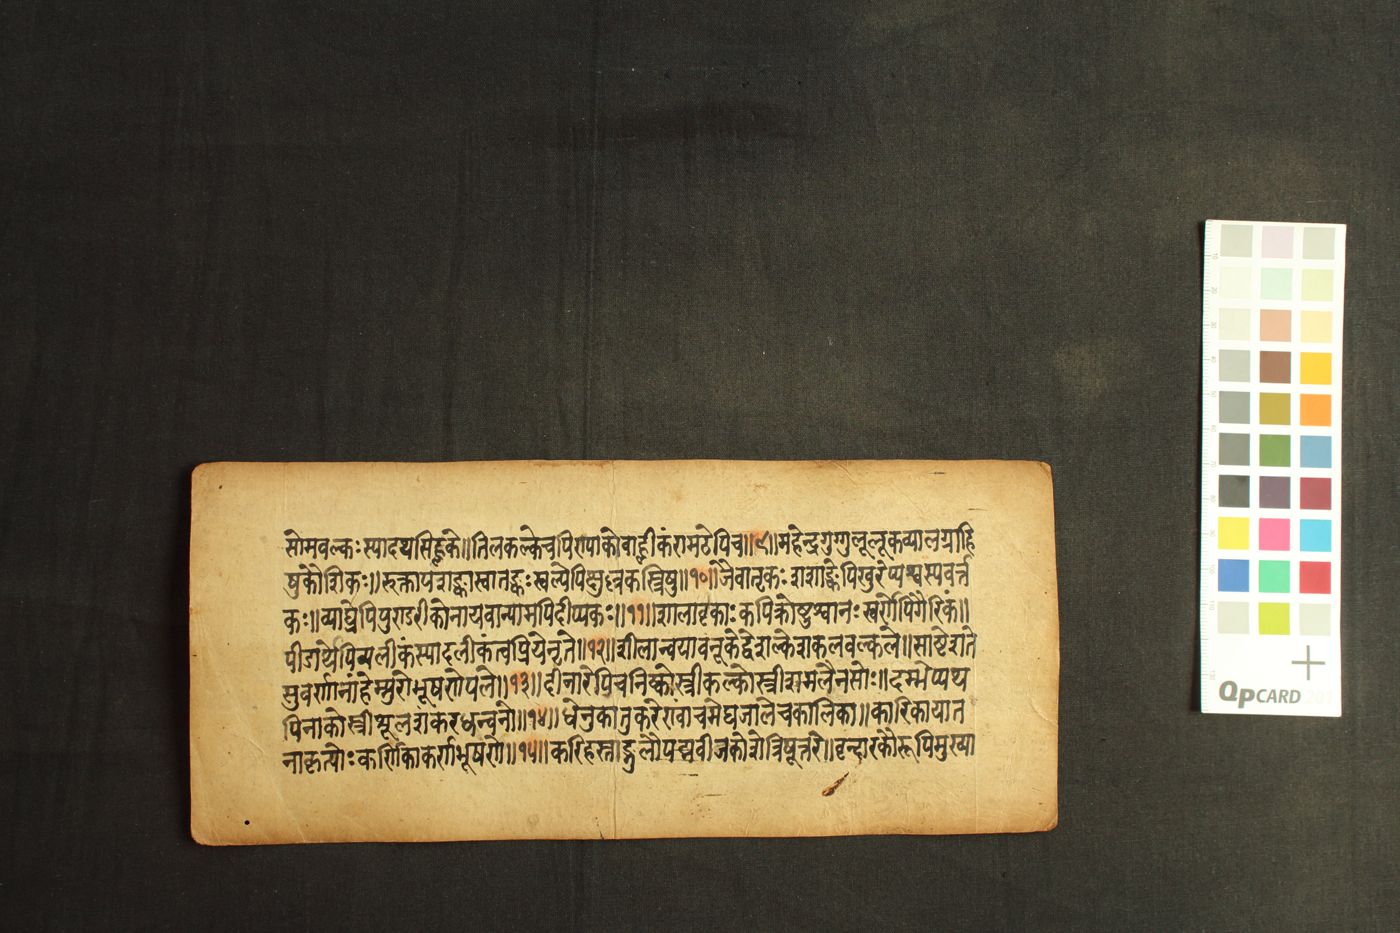 सोमवल्कः स्यादथसिह्लके॥तिलकल्केचपिण्याकोबाह्लीकंरामठेपिच॥९॥महेन्द्रगुग्गुलूलूकव्यालग्राहि
षुकौशिकः॥रुक्तापशङ्कास्वातङ्कःस्वल्पेपिक्षुल्लकस्त्रिषु॥१०॥जैवातृकःशशाङ्केपिखुरेप्यश्वस्यवर्त्त
कः॥व्याघ्रेपिपुण्डरीकोनायवान्यामपिदीप्यकः॥११॥शालावृकाःकपिक्रोष्टुश्वानःस्वर्णेपिगैरिकं॥
पीडार्थेपिव्यलीकंस्यादलीकंत्वप्रियेनृते॥१२॥शीलान्वयावनूकेद्वेशल्केशकलवल्कले॥साष्टेशते
सुवर्णानांहेम्न्युरोभूषणेपले॥१३॥दीनारेपिचनिष्कोस्त्रीकल्कोस्त्रीशमलैनसोः॥दम्भेप्यथ
पिनाकोस्त्रीशूलशंकरधन्वनोः॥१४॥धेनुकातुकरेण्वांचमेघजालेचकालिका॥कारिकायात
नाकृत्योःकर्णिकाकर्णभूषणे॥१५॥करिहस्ताङ्गुलौपद्मबीजकोशेत्रिषूत्तरे॥वृन्दारकौरूपिमुख्या
QPCARD 201